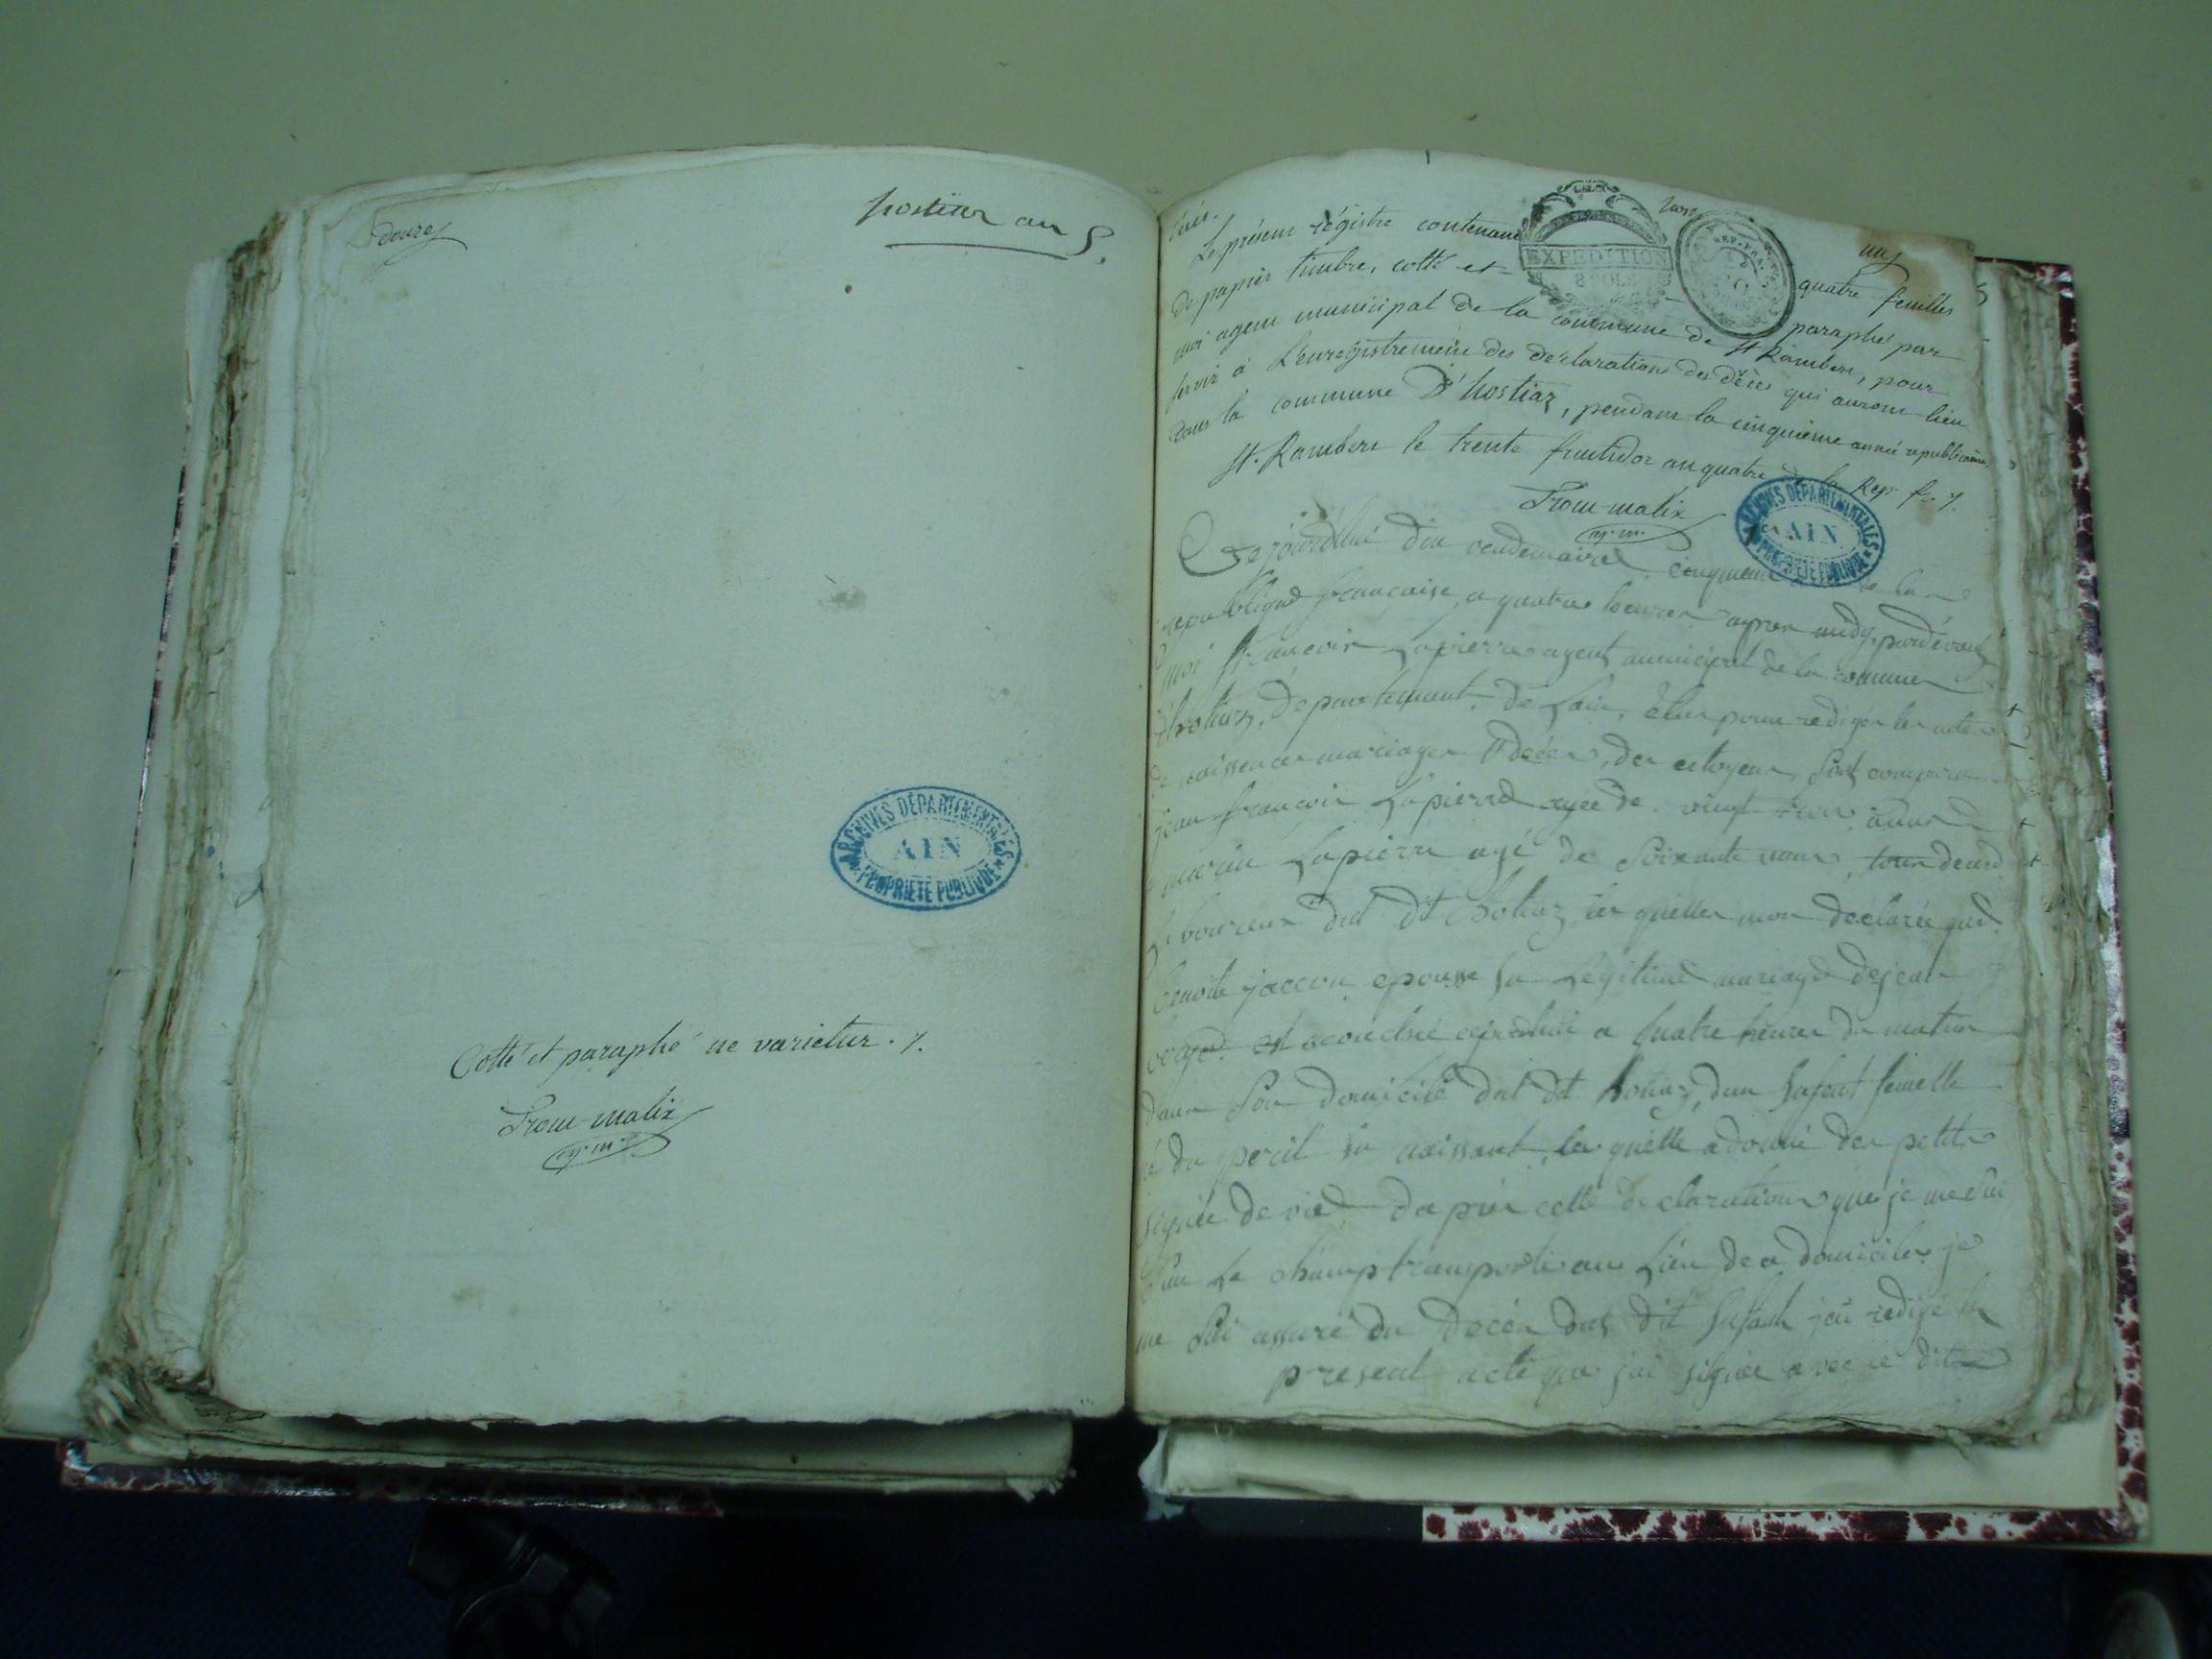 douze
hostiaz an 5.
ARCHIVES DÉPARTEMENTALES
AIN
PROPRIÉTÉ PUBLIQUE
Cotté et paraphé ne varietur ./.
Trocu-matix
ag. m.
un
Le présent régistre contenant quatre feuilles
EXPEDITION
8 SOLS
REP. FRA.
de papier timbré, cotté et paraphé par
moi agent municipal de la commune de St Rambert, pour
servir à l'enregistrement des déclarations des décès qui auront lieu
dans la commune D'hostiaz, pendant la cinquième année républicaine
St. Rambert le trente fructidor an quatre de la Rep. fr. /.
ARCHIVES DÉPARTEMENTALES
AIN
PROPRIÉTÉ PUBLIQUE
Cejourdhui dix vendemaire cinquieme de la
republique francaise, a quatre heures apres midy, pardevant
moi francois Lapierre agent municipal de la commune
d'hotiaz, departement de Lain, elue pour rediger les actes
de naissances mariages & deces, des citoyens, sont comparu
jean francois Lapierre agée de vingt trois anns
Lapierre agé de soixante anns, tous deux
laboureurs dud dt hotiaz les quelles mon déclarée que
benoite jaccou epousse en Legitime mariage de jean
est acouchée cejordhui a quatre heures du matin
dans son domicile dud dt hotiaz, dun Enfant femelle
du peril en naissant, la quelle a donné des petits
signe de vie dapres cette declaration que je me sui
sur le champ transporté au Lieu de domicile, je
me sui assuré du deces dud dit Enfant jai redigé le
present acte que jai signée avec